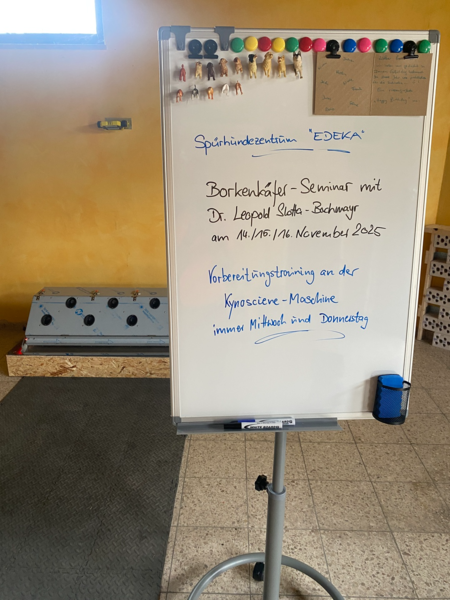 Spürhundezentrum "EDEKA"
Borkenkäfer-Seminar mit
Dr. Leopold Slotta-Bachmayr
am 14./15./16. November 2025
Vorbereitungstraining an der
Kynoscience-Maschine
immer Mittwoch und Donnerstag